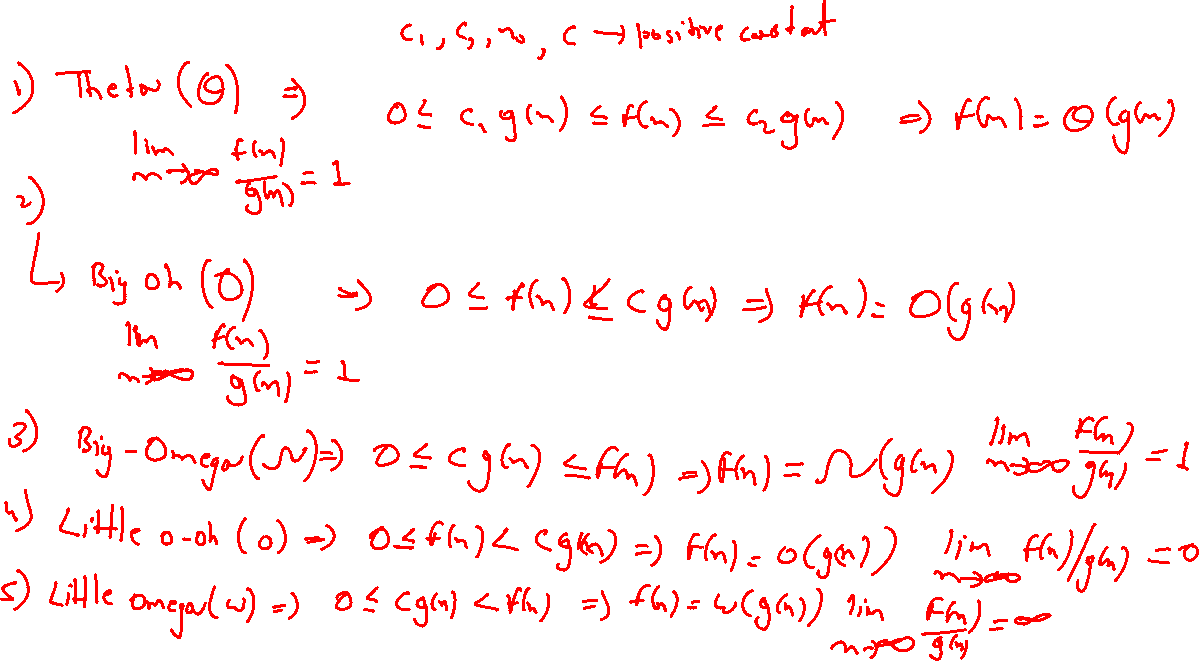 c₁, c₂, n₀, c → positive constant
1) Theta (Θ) ⇒ 0 ≤ c₁ g(n) ≤ f(n) ≤ c₂ g(n) ⇒ f(n) = Θ(g(n)
lim n→∞ f(n)/g(n) = 1
2)
↳ Big oh (O) ⇒ 0 ≤ f(n) ≤ c g(n) ⇒ f(n) = O(g(n)
lim n→∞ f(n)/g(n) = 1
3) Big-Omega (Ω) ⇒ 0 ≤ c g(n) ≤ f(n) ⇒ f(n) = Ω(g(n) lim n→∞ f(n)/g(n) = 1
4) Little o-oh (o) ⇒ 0 ≤ f(n) < c g(n) ⇒ f(n) = o(g(n)) lim n→∞ f(n)/g(n) = 0
5) Little omega (ω) ⇒ 0 ≤ c g(n) < f(n) ⇒ f(n) = ω(g(n)) lim n→∞ f(n)/g(n) = ∞